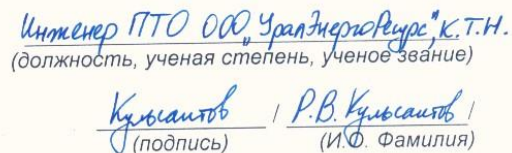 Инженер ПТО ООО „УралЭнергоРесурс", К.Т.Н.
(должность, ученая степень, ученое звание)
Кульсаитов / Р.В. Кульсаитов /
(подпись) (И.О. Фамилия)